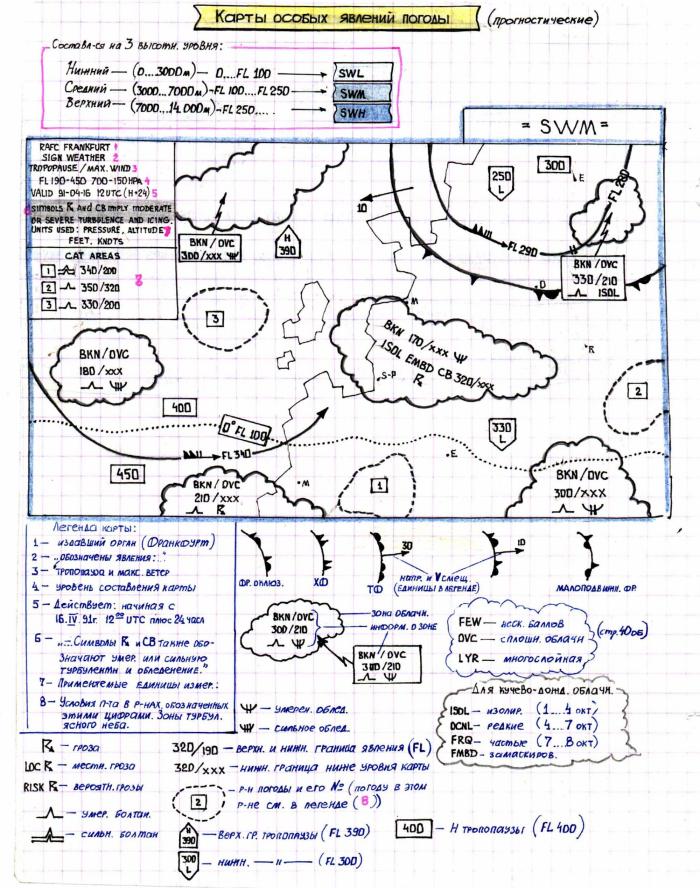 Карты особых явлений погоды (прогностические)
Составл-ся на 3 высотн. уровня:
Нижний — (0...3000м) — 0....FL 100 → SWL
Средний — (3000...7000м) – FL 100....FL 250 → SWM
Верхний — (7000...14.000м) – FL 250,.... → SWH
= SWM =
RAFC FRANKFURT 1
SIGN WEATHER 2
TROPOPAUSE / MAX. WIND 3
FL 190-450 700-150 HPA 4
VALID 91-04-16 12 UTC (H+24) 5
SYMBOLS R AND CB IMPLY MODERATE
OR SEVERE TURBULENCE AND ICING
UNITS USED: PRESSURE, ALTITUDE
FEET, KNOTS
CAT AREAS
1 340/200
2 350/320
3 330/200
8
BKN / OVC
300/xxx
H
390
10
250
L
300
E
FL 280
FL 290
BKN / OVC
330/210
ISOL
D
3
M
BKN 170/xxx
ISOL EMBD CB 320/xxx
R
S-P
R
2
BKN / OVC
180/xxx
400
0° FL 100
FL 340
450
BKN / OVC
210/xxx
R
M
1
330
L
E
BKN / OVC
300/xxx
Легенда карты:
1 — издавший орган (Франкфурт)
2 — „обозначены явления:..."
3 — Тропопауза и макс. ветер
4 — уровень составления карты
5 — Действует: начиная с
16.IV.91г. 12⁰⁰ UTC плюс 24 часа
6 — „... Символы R и CB также обо-
значают умер. или сильную
турбулентн. и обледенение."
7 — Применяемые единицы измер.:
8 — Условия п-та в р-нах, обозначенных
этими цифрами. Зоны турбул.
ясного неба.
Фр. окклюз.
ХФ
ТФ
30
10
напр. и V смещ.
(единицы в легенде)
малоподвижн. фр.
BKN / OVC
300/210
зона облачн.
информ. о зоне
BKN / OVC
300/210
FEW — неск. баллов
OVC — сплошн. облачн
LYR — многослойная
(стр. 40 об)
Для кучево-дожд. облачн.
ISOL — изолир. (1....4 окт)
OCNL — редкие (4....7 окт)
FRQ — частые (7...8 окт)
EMBD — замаскиров.
— умерен. облед.
— сильное облед.
R — гроза
LOC R — местн. гроза
RISK R — вероятн. грозы
— умер. болтан.
— сильн. болтан
320/190 — верхн. и нижн. граница явления (FL)
320/xxx — нижн. граница ниже уровня карты
2 — р-н погоды и его № (погоду в этом
р-не см. в легенде (8))
H
390 — верх. гр. тропопаузы (FL 390)
400 — H тропопаузы (FL 400)
300
L — нижн. — " — (FL 300)